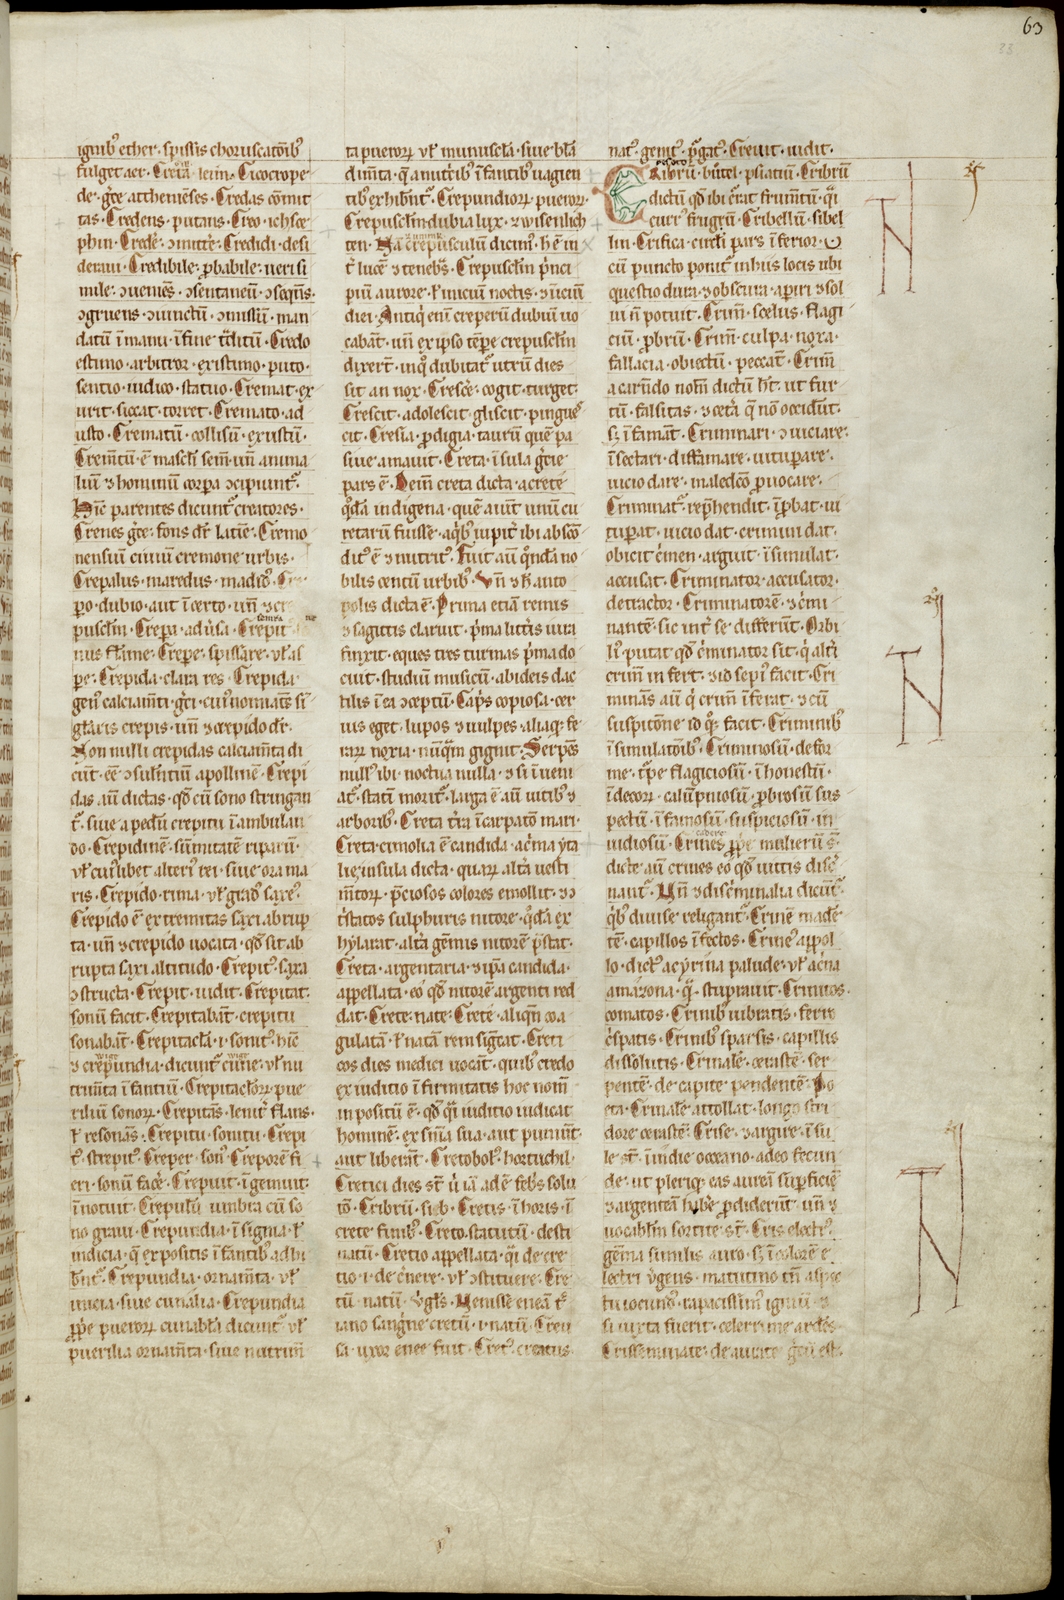 63
ignibꝰ ether. spissis choruscatōibꝰ
fulget aer. Creta. leim. Cicocrope
de. gͣce atthenienses. Credas cōmit
tas. Credens. putans. Creo. ichscε
phin. Credē. ɔmittē. Credidi. desi
deraui. Credibile. ꝓbabile. ueri si
mile. ɔueniēs. ɔsentaneū. ɔseqn̄s.
ɔgruens. ɔiunctū. ɔmissū. man
datū ĩ manu. ĩ fine t̃ditū. Credo
estimo. arbitror. existimo. puto.
sentio. iudico. statuo. Cremat. ex
urit. siccat. torret. Cremato. ad
usto. Crematū. collisū. exustū.
Crem̄tū. ē mascl̄i sem̄. un̄ anima
liū. ⁊ hominū corꝑa ɔcipiunt᷑.
Hīc parentes dicunt᷑ creatores.
Crenes gͣce. fons dr̄ latīe. Cremo
nensiū ciuiū cremone urbis.
Crepalus. maredus. madidꝰ.
ꝑo. dubio. aut ĩcerto. un̄
pusclīn. Crepa. aduſa. Crepit
nus flāīne. Crepe. spissare. uł as
pe. Crepida. clara res. Crepida.
genꝰ calciam̄ti. gͣci. cuiꝰ nomiatꝰ si
głaris crepis. un̄ ⁊ crepido dr̄.
Non nulli crepidas calciam̄ta di
cūt. eē ɔ apollinē. Crepi
das aū dictas. qd̄ cū sono stringan
t᷑. siue a pedū crepitu ĩ ambulan
do. Crepidinē. sūmitatē riparū.
uł cuiꝰlibet alteriꝰ rei. siue ora ma
ris. Crepido. rima. uł gradꝰ saxeꝰ.
Crepido ē extremitas saxi abrup
ta. un̄ ⁊ crepido uocata. qd̄ sit ab
rupta saxi altitudo. Crepitꝰ. saxa
ɔstructa. Crepit. iudit. Crepitat.
sonū facit. Crepitabāt. crepitu
sonabāt. Crepitacl̄a. ı. sonitꝰ. hīc
⁊ crepundia. dicunt᷑ cune. uł nu
trim̄ta ĩfantiū. Crepitacl̄oꝝ. pue
riliū sonoꝝ. Crepitās. lenit̄ flans.
ł resonās. Crepitu. sonitu. Crepi
tꝰ. strepitꝰ. Creper. sonꝰ. Creporē fi
eri. sonū facē. Crepuit. ĩgemuit.
ĩnotuit. Crepulū. umbra cū so
no graui. Crepundia. ĩsigma. ł
indicia. q̄ expositis ĩfantibꝰ adhi
bn̄t᷑. Crepundia. ornam̄ta. uł
inicia. siue cunalia. Crepundia
ꝓpͥe pueroꝝ cunabla dicunt᷑. uł
puerilia ornam̄ta. siue nutrim̄
ta pueroꝝ. uł munuscl̄a. siue bla
dim̄ta. q̄ a nutͥcibꝰ ĩfantibꝰ uagien
tibꝰ exhibn̄t᷑. Crepundioꝝ. pueroꝝ.
Crepusclīn. dubia lux. zwisenlich
ten. Nā crepusculū dicimꝰ. h̄ ē in
t̄ lucē ⁊ tenebͣs. Crepusclīn pͥnci
piū aurore. ł iniciū noctis. ⁊ iniciū
diei. Antiqͥ enī creperū dubiū uo
cabāt. un̄ ex ipso tēpe crepusclīn
dixert̄. in qͦ dubitat᷑ utrū dies
sit an nox. Crescē. cogit. turget.
Crescit. adolescit. gliscit. pingues
cit. Cresia. ꝓdigia. taurū quē pa
siue amauit. Creta. ĩsula gͣcie
pars ē. Deīn creta dicta. a crete
qͦdā indigena. quē aiunt unū cu
retarū fuisse. a qͥbꝰ iupit̄ ibi abscō
ditꝰ ē ⁊ nutritꝰ. Fuit aū qͦndā no
bilis centū urbibꝰ. Vn̄ ⁊ h̄ cento
polis dicta ē. Prima etiā remis
⁊ sagittis claruit. pͥma litt̄is iura
finxit. eques tres turmas pͥma do
cuit. studiū musicū. ab ideis dac
tilis ĩ ea ɔceptū. Capͥs copiosa. cer
uis eget. lupos ⁊ uulpes. aliaqꝫ fe
raꝝ noxia. nūqͣm gignit. Serpēs
nullꝰ ibi. noctua nulla. ⁊ si ĩueni
at᷑. statī morit᷑. larga ē aū uitibꝰ ⁊
arboribꝰ. Creta t̄ra ĩ carpato mari.
Creta. cimolia ē candida. a cͥma yta
lię insula dicta. quaꝝ alt̄a uesti
m̄toꝝ. p̄ciosos colores emollit. ⁊ ɔ
tͥstatos sulphuris nitore. qͦdā ex
hylarat. alt̄a gēmis nitorē p̄stat.
Creta. argentaria. ⁊ ip̄a candida.
appellata. eo qd̄ nitorē argenti red
dat. Crete. nate. Crete. aliqͥn coa
gulatā. ł natā rem sigͥcat. Creti
cos dies medici uocāt. quibꝰ credo
ex iuditio ĩfirmitatis hoc nom̄
inpositū ē. qd̄ qͣsi iuditio iudicat
hominē. ex sn̄ia sua. aut puniūt.
aut liberāt. Cretobolꝰ. hortuchil.
Cretici dies st̄. ĩ iā adē febͥs solu
tō. Cribrū. sib. Cretis. ĩ horis. ĩ
crete finibꝰ. Creto. statutū. desti
natū. Cretio appellata. qͣsi de cre
tio. ı. decernere. uł ɔstituere. Cre
tū. natū. v̄gl̄s. Venisse eneā t̄
iano sangͥne cretū. ı. natū. Creu
sa. uxor enee fuit. Cretꝰ. creatus
natꝰ. genitꝰ. ꝑgat᷑. Creuit. iudit.
Cribrū. būtel. psiatiū. Cribrū
dictū qd̄ ibi c̄rat frum̄tū. qͣsi
curͥ frugū. Cribellū. sibel
lin. Crifica. circl̄i pars ĩferior.
cū puncto ponit᷑ in hiis locis ubi
questio dura. ⁊ obscura. apiri ⁊ sol
ui n̄ potuit. Crim̄. scelus. flagi
ciū. ꝓbrū. Crim̄. culpa. noxa.
fallacia. obiectū. peccat̄. Crim̄
a carūdo nom̄ dictū h̄t. ut fur
tū. falsitas. ⁊ cet̄a q̄ nō occidūt.
sꝫ ĩfamāt. Criminari. ɔuiciare.
ĩsectari. diffamare. uitupare.
uicio dare. maledicō ꝓuocare.
Criminat᷑. rep̄hendit. ĩꝓbat. ui
tuꝑat. uicio dat. crimini dat.
obicit cͥmen. arguit. ĩsimulat.
accusat. Criminator. accusator.
detractor. Criminatorē. ⁊ cͥmi
nantē. sic int̄ se differūt. Orbi
lꝰ. putat qd̄ cͥminator sit. qͥ alt̄i
crim̄ infert. ⁊ id sepiꝰ facit. Cri
minās aū qͥ crim̄ ĩferat. ⁊ cū
suspitōne id qꝫ facit. Criminibꝰ
ĩsimulatōibꝰ. Criminosū. defor
me. tͥpe. flagiciosū. ĩhonestū.
ĩdecoꝝ. calūpniosū. ꝓbrosū. sus
pectū. ĩfamosū. suspiciosū. in
uidiosū. Crines ꝓpͥe mulierū s̄.
dicte aū crines eo qd̄ uittis discͥ
nant᷑. Vn̄ ⁊ discͥminalia dicūt᷑.
qͥbꝰ diuise religant᷑. Crinē madē
tē. capillos ĩfectos. Crineꝰ appol
lo. dictꝰ a cyrina palude. uł a cͥna
amazona. qͣ stuprauit. Crinitos.
comatos. Crinibꝰ uibratis. ferro
cͥspatis. Crinibꝰ sparsis. capillis
dissolutis. Crinale. cerastē. ser
pentē. de capite pendentē. Po
eta. Crinale attollat. longo stri
dore cerastē. Crise. ⁊ argire. ĩsu
le st̄. ĩ indie occeano. adeo fecun
de. ut pleriqꝫ eas aureā suꝑficiē
⁊ argentā habe ꝓdiderūt. un̄ ⁊
uocablīn sortite st̄. Cris electrꝰ.
gēma similis auro. sꝫ ĩ colorē e
lectri v̄gens. matutino tm̄ aspec
tu iocundꝰ. rapacissimꝰ igniū. ⁊
si iuxta fuerit. celerrime ardēs.